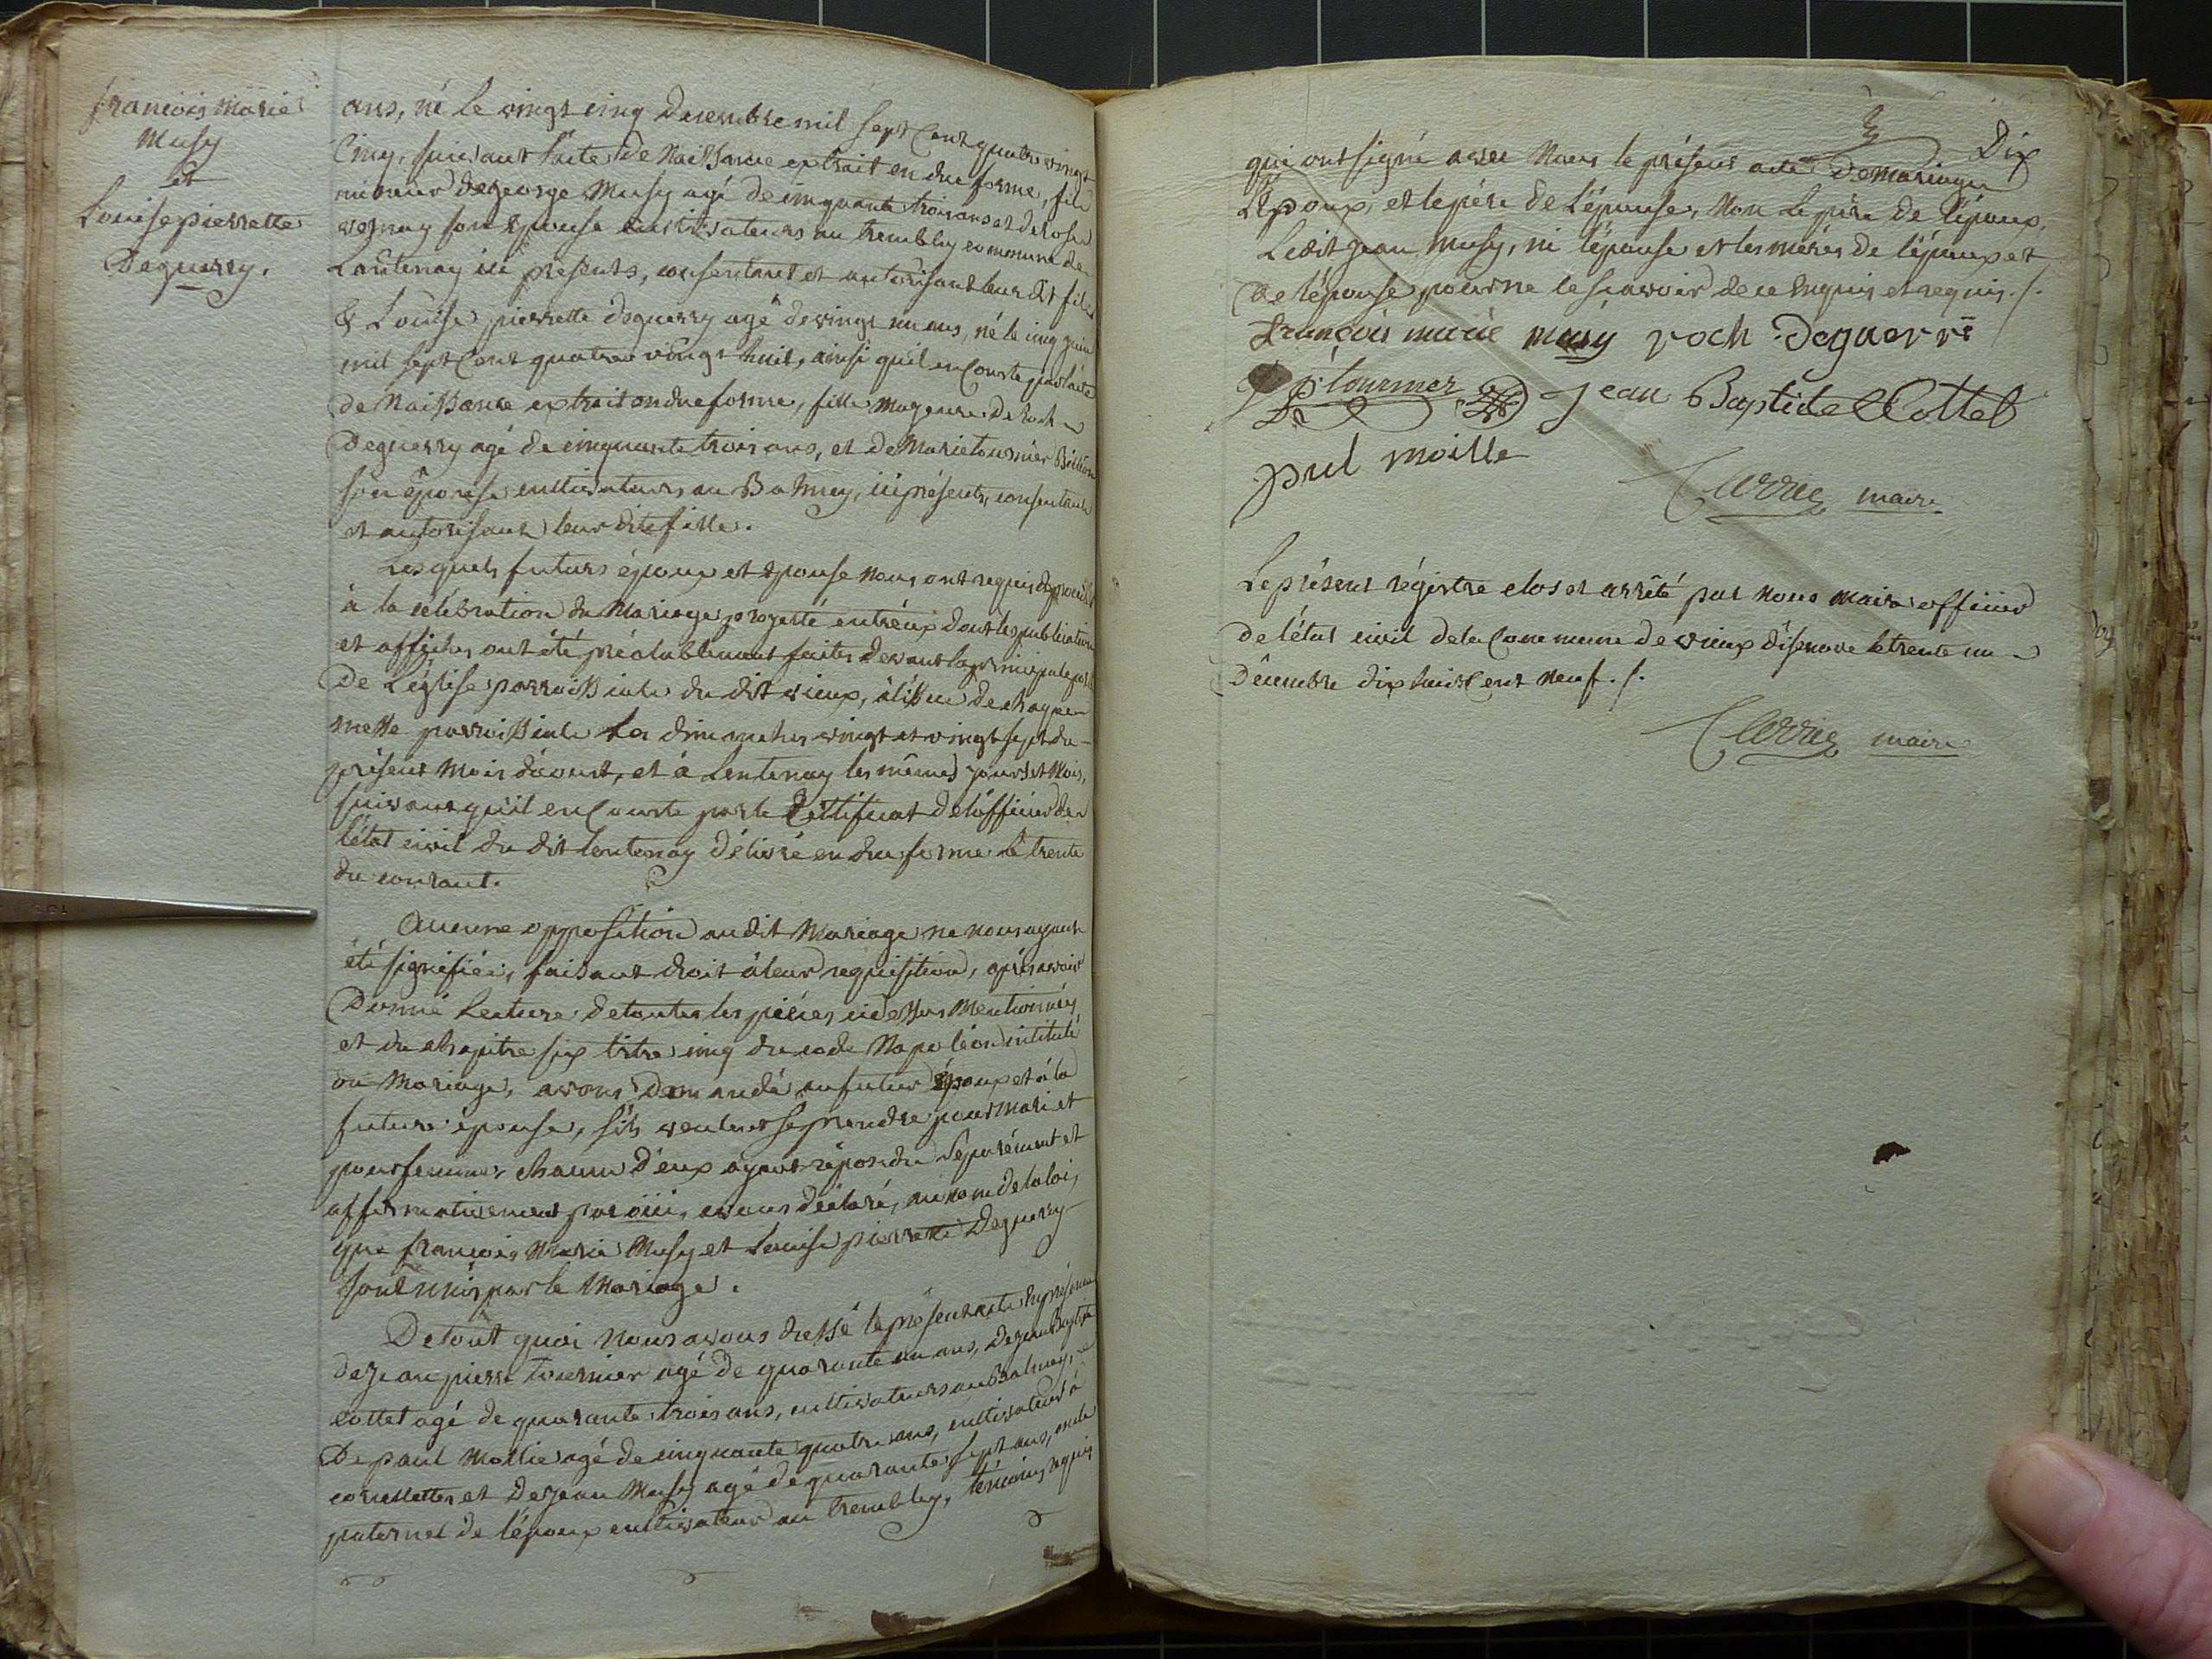 françois marie
Musy
et
Louise pierrette
Deguerry.
ans, né le vingt cinq Decembre mil sept Cent quatre vingt
Cinq, suivant l'acte de Naissance extrait en due forme, fils
mineur de george Musy agé de cinquante trois ans et de Rose
vernay son Epouse cultivateurs au trembley commune de
Lantenay ici presents, consentant et autorisant leur dit fils
& Louise pierrette deguerry agé de vingt un ans, né le cinq juin
mil sept Cent quatre vingt huit, ainsi qu'il en Conste par l'acte
de Naissance extrait en due forme, fille Majeure de Roch
Deguerry agé de cinquante trois ans, et de Marie tournier
son épouse cultivateurs au Balmey, ici présents, consentant
et autorisant leur dite fille.
Lesquels futurs époux et épouse Nous ont requis de procéder
à la célébration du Mariage projetté entr'eux dont les publications
et affiches ont été préalablement faites devant la principale porte
De L'église parroissiale du dit vieux, à l'issue de chaque
messe parroissiale les dimanches vingt et vingt sept du
présent Mois d'aoust, et à Lentenay les mêmes jours et Mois,
suivant qu'il en Conste par le Certificat de l'officier de
l'état civil du dit lentenay délivré en due forme le trente
du courant.
Aucune opposition au dit Mariage ne nous ayant
été signifiée, faisant droit à leur requisition, après avoir
Donné Lecture de toutes les pièces ci dessus Mentionnées
et du chapitre six titre cinq du code Napoléon intitulé
du Mariage, avons demandé au futur époux et à la
future épouse, s'ils veulent se prendre pour Mari et
pour femme, chacun d'eux ayant répondu séparément et
affirmativement par oüi, avons déclaré, au nom de la loi,
que françois Marie Musy et Louise pierrette Deguerry
sont unis par le Mariage.
De tout quoi nous avons dressé le présent acte en présence
de jean pierre tournier agé de quarante un ans, de jean Baptiste
cottet agé de quarante trois ans, cultivateurs au Balmey,
De paul Mollie agé de cinquante quatre ans, cultivateur à
et de jean Musy agé de quarante sept ans, oncle
paternel de l'époux cultivateur au trembley, témoins requis
Dix
qui ont signé avec Nous le présent acte de mariage
L'Epoux, et le père de L'épouse, Non le père de l'époux,
Ledit jean Musy, ni l'épouse et les mères de l'époux et
de l'épouse pour ne le sçavoir de ce Enquis et requis./.
françois marie musy roch Deguerri
tournier Jean Baptiste Cottet
pul moille
Carrier maire
Le présent régistre clos et arrêté par Nous maire officier
de l'état civil de la Commune de vieux d'isenave le trente un
Décembre dix huit Cent Neuf./.
Carrier maire